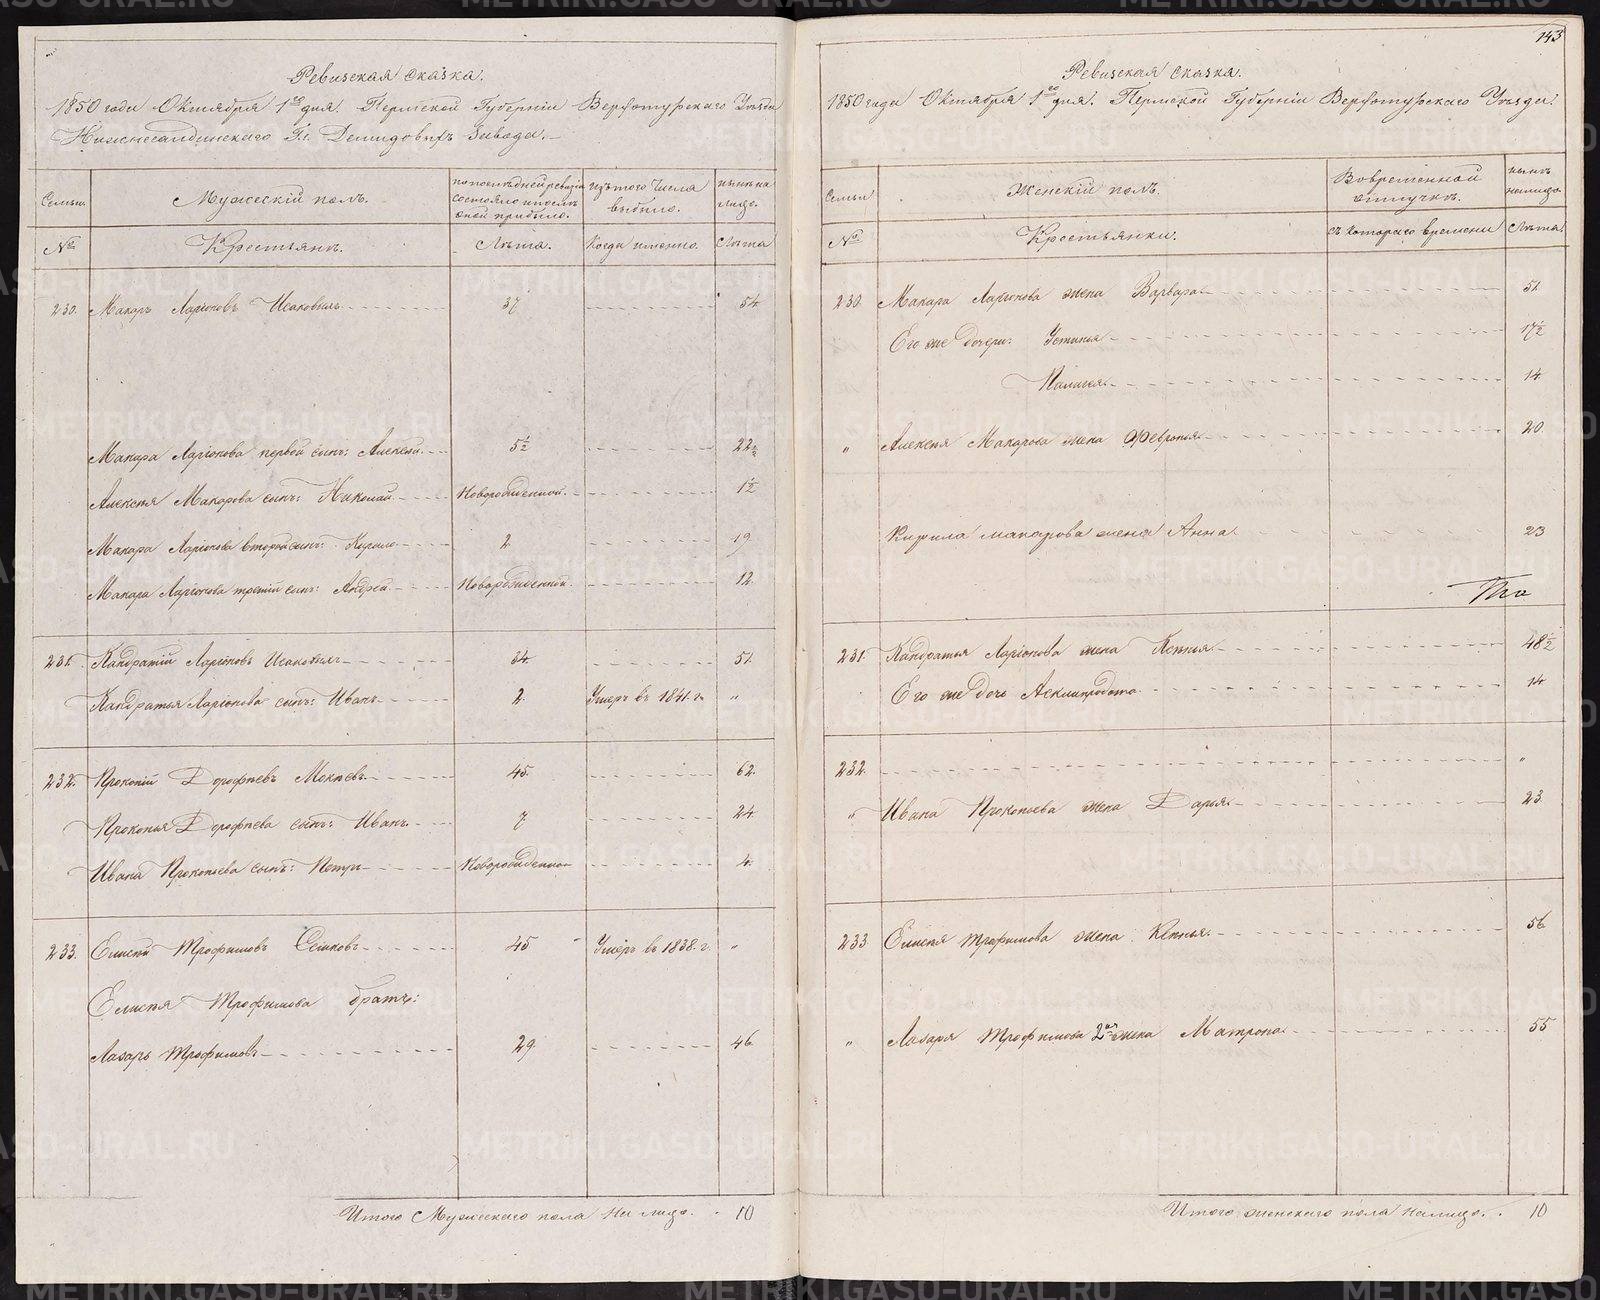 Ревизская сказка.
1850 года Октября 1го дня. Пермской Губерніи Верхотурскаго Уѣзда
Нижнесалдинскаго Г.г. Демидовыхъ Завода.
Семьи. Мужескій полъ. по последней ревизіи состояло и после оной прибыло. изъ того числа выбыло. нынѣ на лицо.
№ Крестьянъ. Лѣта. Когда именно. Лѣта
230. Макаръ Ларіоновъ 37 54
Макара Ларіонова первой сынъ: Алексей 5½ 22½
Алексѣя Макарова сынъ: Николай Новорожденной 1½
Макара Ларіонова второй сынъ: Кирило 2 19
Макара Ларіонова третій сынъ: Андрей Новорожденной 12
231. Кандратій Ларіоновъ 34 51
Кандратья Ларіонова сынъ: Иванъ 2. Умеръ въ 1841. г. "
232. Прокопій Дорофѣевъ Мокѣевъ 45. 62.
Прокопья Дорофѣева сынъ: Иванъ 7 24
Ивана Прокопьева сынъ: Петръ Новорожденной 4.
233. Елисѣй Трофимовъ 45 Умеръ въ 1838. г. "
Елисѣя Трофимова братъ:
Лазарь Трофимовъ 29. 46.
Итого Мужескаго пола на лицо. 10
143
Ревизская сказка.
1850 года Октября 1го дня. Пермской Губерніи Верхотурскаго Уѣзда.
Семьи Женскій полъ. Во временной отлучкѣ. нынѣ налицо.
№ Крестьянки. съ котораго времени Лѣта.
230. Макара Ларіонова жена Варвара 51.
Его же дочери: Устинья 17½
Палагея 14
" Алексѣя Макарова жена Февронья 20.
Кирила Макарова жена Анна 23
231. Кандратья Ларіонова жена Ксенья 48½
Его же дочь 14
232. "
" Ивана Прокопьева жена Дарья 23.
233 Елисѣя Трофимова жена Ксенья 56
" Лазаря Трофимова 2ая жена Матрона 55
Итого женскаго пола налицо. 10
METRIKI.GASO-URAL.RU